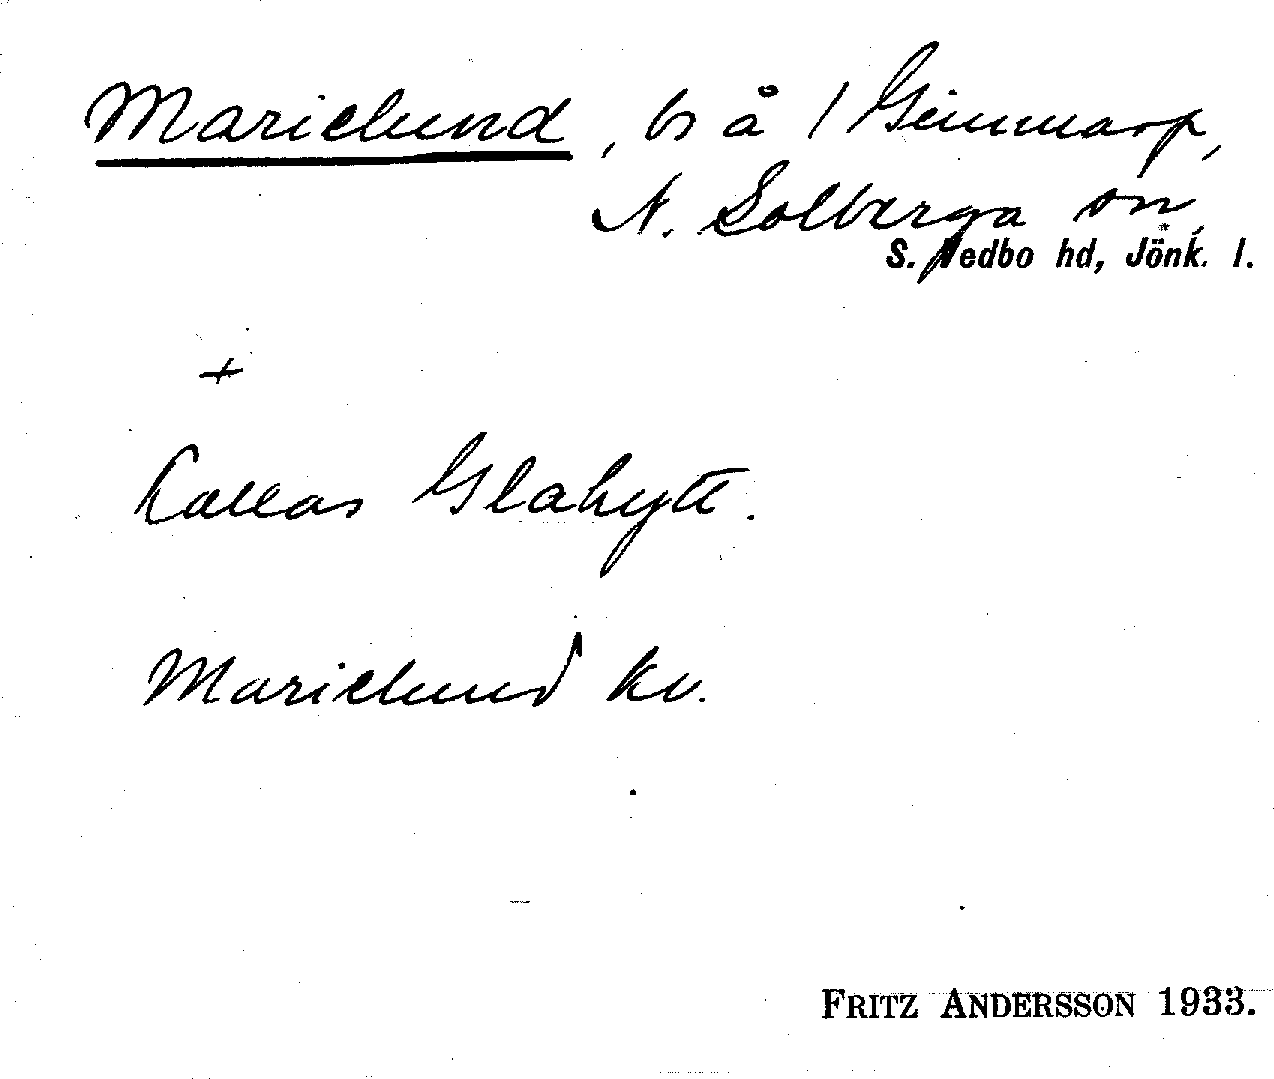 Marielund, bs å 1 Gimmarp,
N. Solberga sn,
S. Vedbo hd, Jönk. l.
+
Kallas Glahytt.
Marielund kv.
FRITZ ANDERSSON 1933.